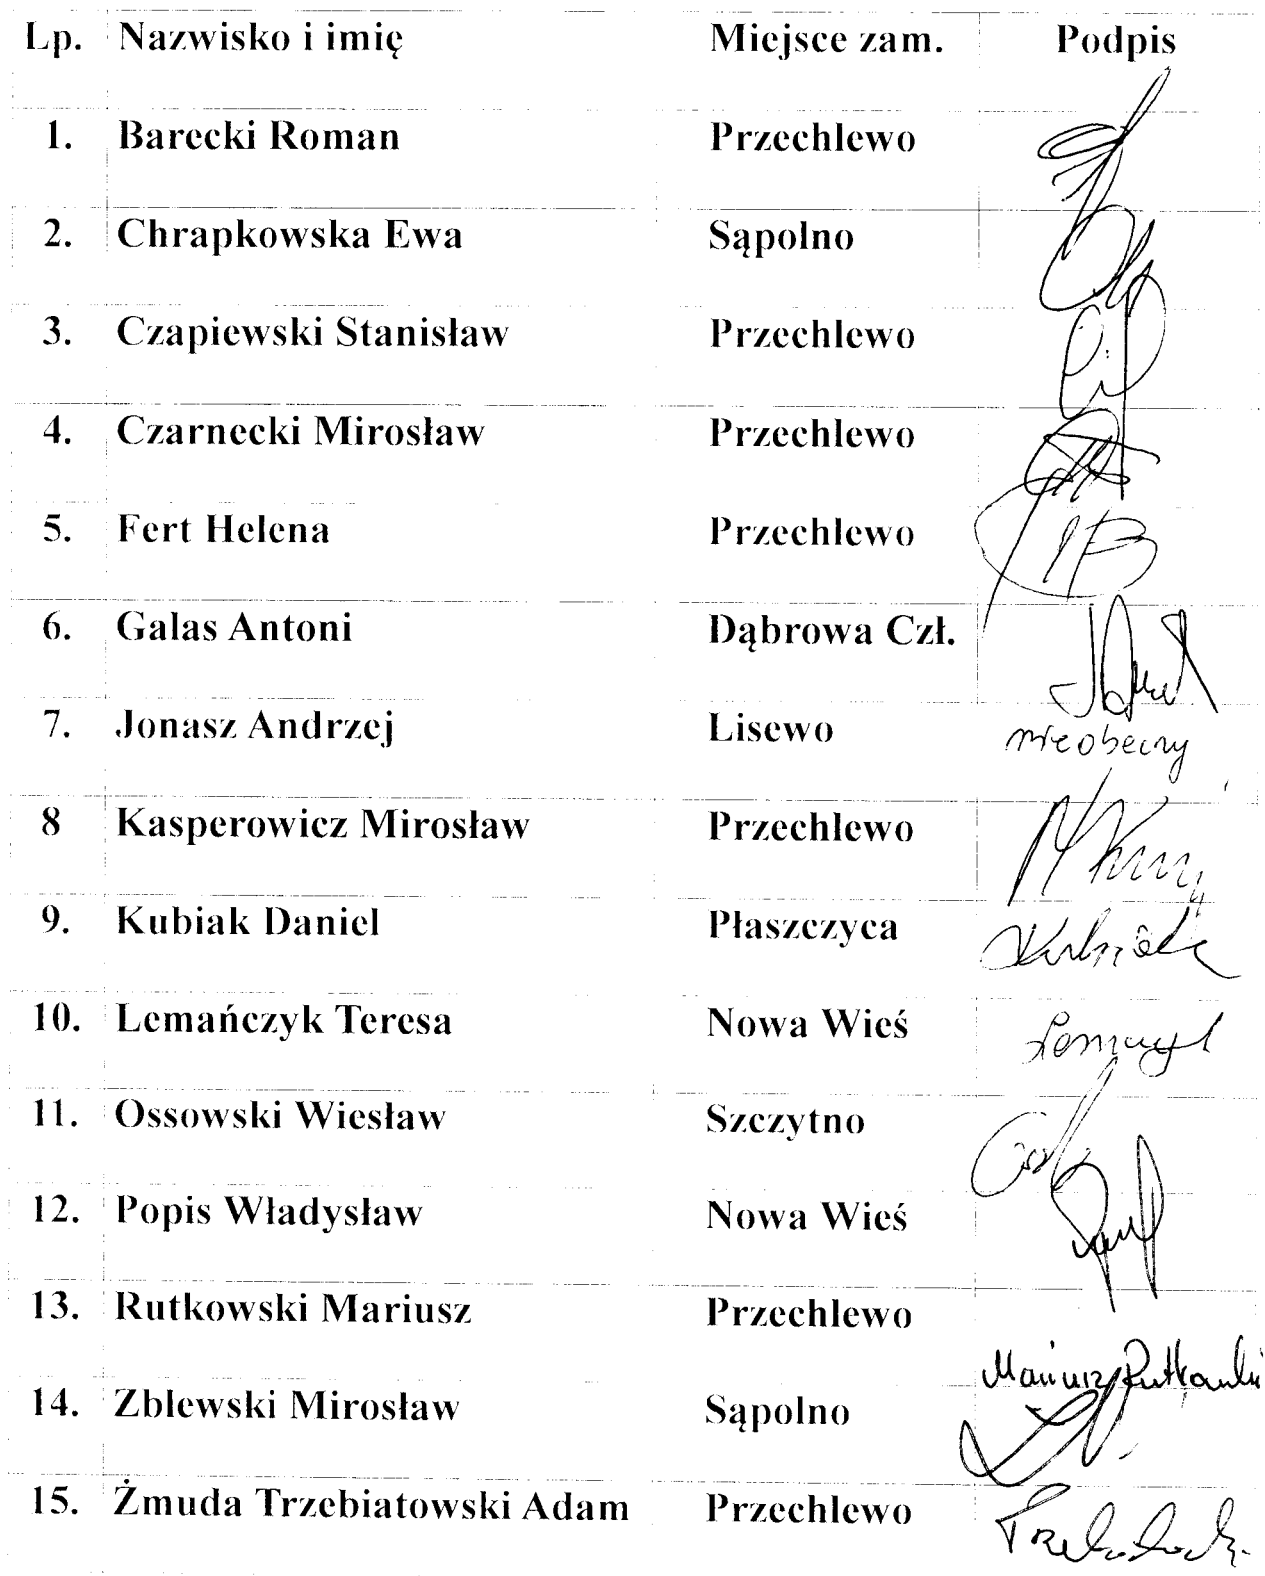 Lp. Nazwisko i imię Miejsce zam. Podpis
1. Barecki Roman Przechlewo
2. Chrapkowska Ewa Sąpolno
3. Czapiewski Stanisław Przechlewo
4. Czarnecki Mirosław Przechlewo
5. Fert Helena Przechlewo
6. Galas Antoni Dąbrowa Czł.
7. Jonasz Andrzej Lisewo nieobecny
8 Kasperowicz Mirosław Przechlewo
9. Kubiak Daniel Płaszczyca Kubiak
10. Lemańczyk Teresa Nowa Wieś
11. Ossowski Wiesław Szczytno
12. Popis Władysław Nowa Wieś
13. Rutkowski Mariusz Przechlewo
Mariusz Rutkowski
14. Zblewski Mirosław Sąpolno
15. Żmuda Trzebiatowski Adam Przechlewo